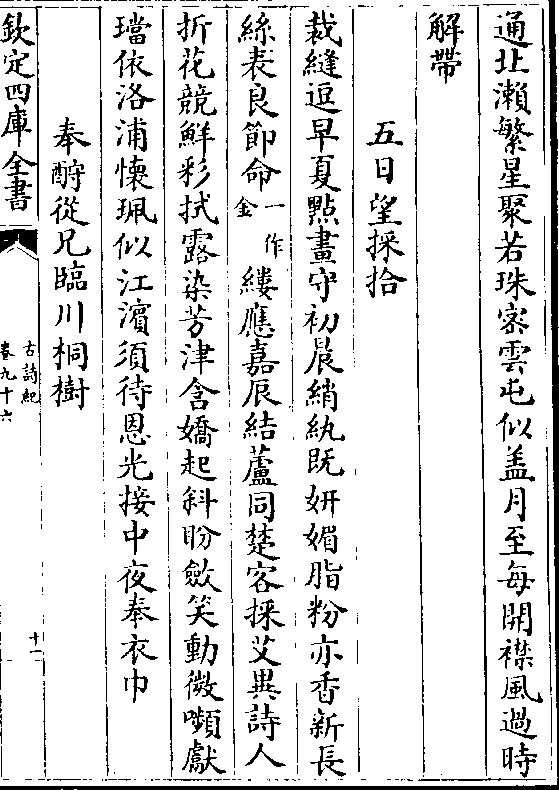 通北瀨繁星聚若珠密雲屯似盖月至每開襟風過時
解帶
五日望採拾
裁縫逗早夏點畫守初晨綃紈既妍媚脂粉亦香新長
絲表良節命一作金縷應嘉辰結蘆同楚客採艾異詩人
折花競鮮彩拭露染芳津含嬌起斜盼斂笑動微嚬獻
璫依洛浦懷珮似江濱須待恩光接中夜奉衣巾
奉酧從兄臨川桐樹
欽定四庫全書
古詩紀
卷九十六
十一